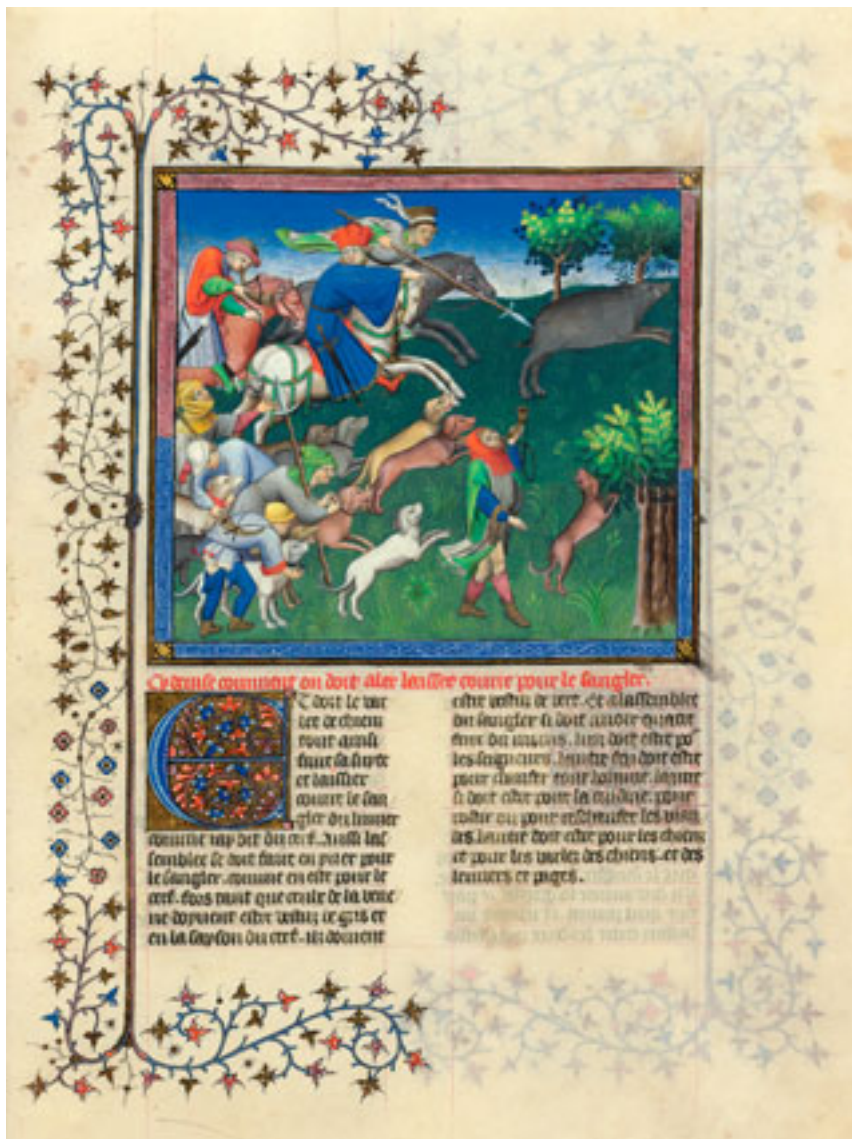 Cy deuise comment on doit aler laissier courre pour le sanglier.
Et doit le var
let de chiens
tout ainsi
faire sa suyte
et laissier
courre le san
glier du limier
comme iay dit du cerf. Aussi las
semblee se doit faire en yuer pour
le sanglier. comme en este pour le
cerf. fors tant que ceulx de la vene
rie doyuent estre vestuz de gris et
en la sayson du cerf. ilz doiuent
estre vestuz de vert. Et a lassemblee
du sanglier si doit auoir quatre
feux du moins. lun doit estre po
les seigneurs. lautre feu doit estre
pour chaufer tout homme. lautre
si doit estre pour la cuisine. pour
rostir ou pour reschaufer les vian
des. lautre doit estre pour les chiens
et pour les varlez des chiens. et des
leuriers et pages.